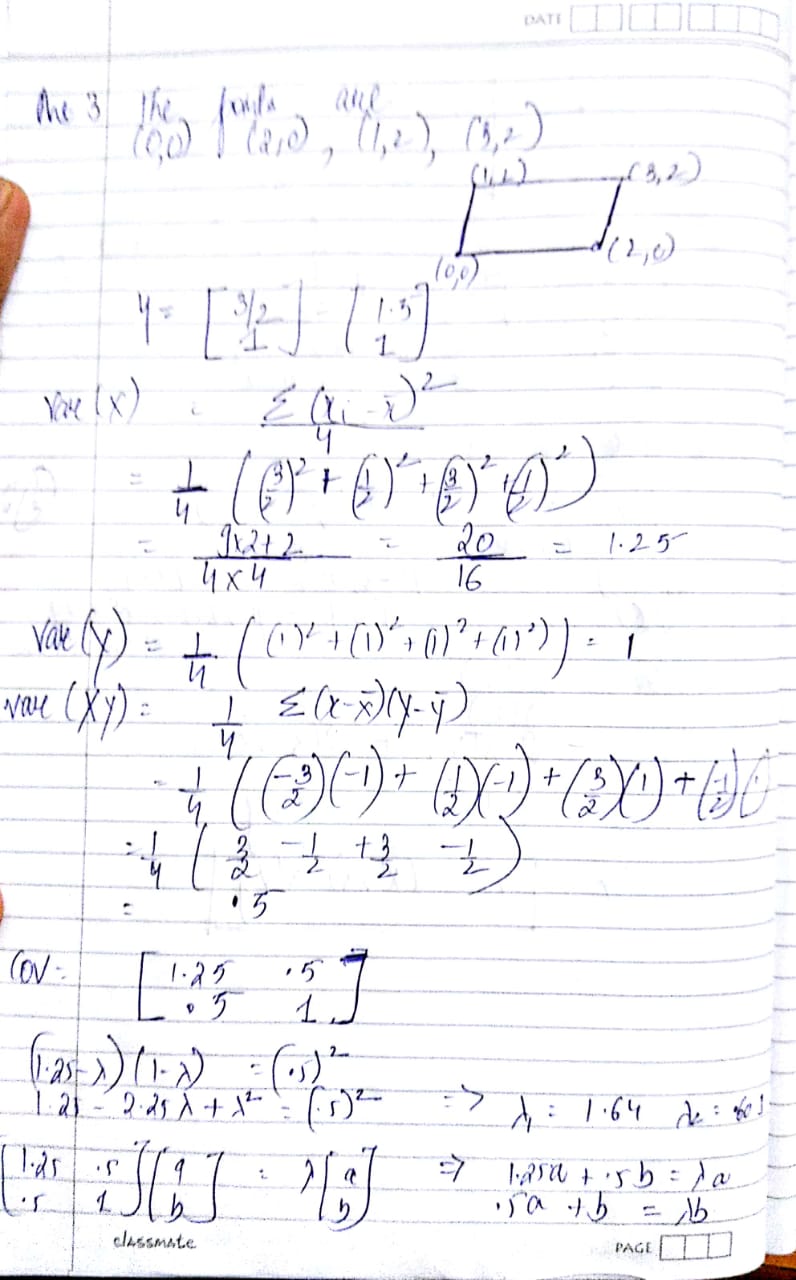 DATE
Ans 3 The points are
(0,0) (2,0), (1,2), (3,2)
(1,2) (3,2)
(0,0) (2,0)
μ = [3/2 1] = [1.5 1]
Var (x) = Σ (xi - x̄)² / 4
= 1/4 ((3/2)² + (1/2)² + (3/2)² + (1/2)²)
= 9x2+2 / 4x4 = 20 / 16 = 1.25
Var (y) = 1/4 ((1)² + (1)² + (1)² + (1)²) = 1
var (xy) = 1/4 Σ(x-x̄)(y-ȳ)
= 1/4 ((-3/2)(-1) + (1/2)(-1) + (3/2)(1) + (-1/2)(
= 1/4 (3/2 - 1/2 + 3/2 - 1/2)
= .5
Cov = [1.25 .5
.5 1]
(1.25-λ) (1-λ) = (.5)²
1.25 - 2.25λ + λ² = (.5)² => λ₁ = 1.64 λ₂ =
[1.25 .5 .5 1] [a b] = λ [a b] => 1.25a + .5b = λa
.5a + b = λb
classmate
PAGE